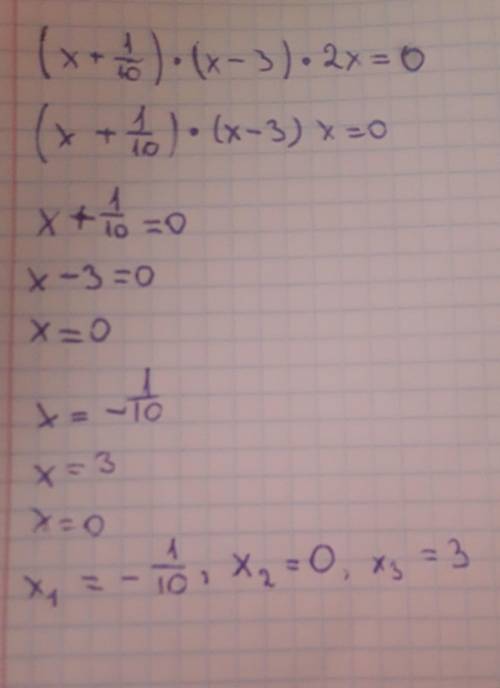 (x + 1/10) · (x - 3) · 2x = 0
(x + 1/10) · (x - 3) x = 0
x + 1/10 = 0
x - 3 = 0
x = 0
x = - 1/10
x = 3
x = 0
x₁ = - 1/10, x₂ = 0, x₃ = 3